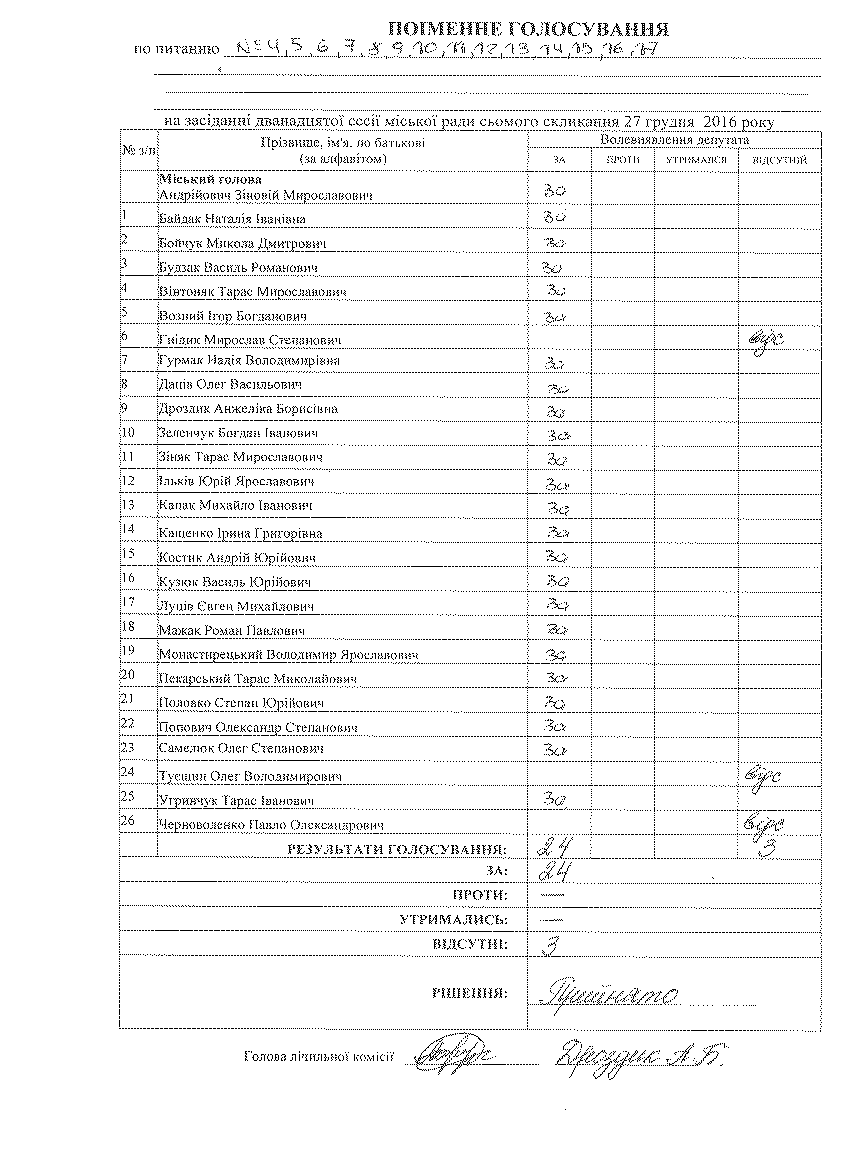 ПОІМЕННЕ ГОЛОСУВАННЯ
по питанню №4, 5, 6, 7, 8, 9, 10, 11, 12, 13, 14, 15, 16, 17
на засіданні дванадцятої сесії міської ради сьомого скликання 27 грудня 2016 року
№ з/п Прізвище, ім'я, по батькові (за алфавітом) Волевиявлення депутата
ЗА ПРОТИ УТРИМАВСЯ ВІДСУТНІЙ
Міський голова
Андрійович Зіновій Мирославович За
1 Байдак Наталія Іванівна За
2 Бойчук Микола Дмитрович За
3 Будзак Василь Романович За
4 Вівтоняк Тарас Мирославович За
5 Возний Ігор Богданович За
6 Гнідик Мирослав Степанович відс
7 Гурмак Надія Володимирівна За
8 Данів Олег Васильович За
9 Дроздик Анжеліка Борисівна За
10 Зеленчук Богдан Іванович За
11 Зіняк Тарас Мирославович За
12 Ільків Юрій Ярославович За
13 Капак Михайло Іванович За
14 Кащенко Ірина Григорівна За
15 Костик Андрій Юрійович За
16 Кузюк Василь Юрійович За
17 Луців Євген Михайлович За
18 Мажак Роман Павлович За
19 Монастирецький Володимир Ярославович За
20 Пекарський Тарас Миколайович За
21 Половко Степан Юрійович За
22 Попович Олександр Степанович За
23 Самелюк Олег Степанович За
24 Олег Володимирович відс
25 Угринчук Тарас Іванович За
26 Черноволенко Павло Олександрович відс
РЕЗУЛЬТАТИ ГОЛОСУВАННЯ: 24 3
ЗА: 24
ПРОТИ: —
УТРИМАЛИСЬ: —
ВІДСУТНІ: 3
РІШЕННЯ: Прийнято
Голова лічильної комісії Дроздик А.Б.